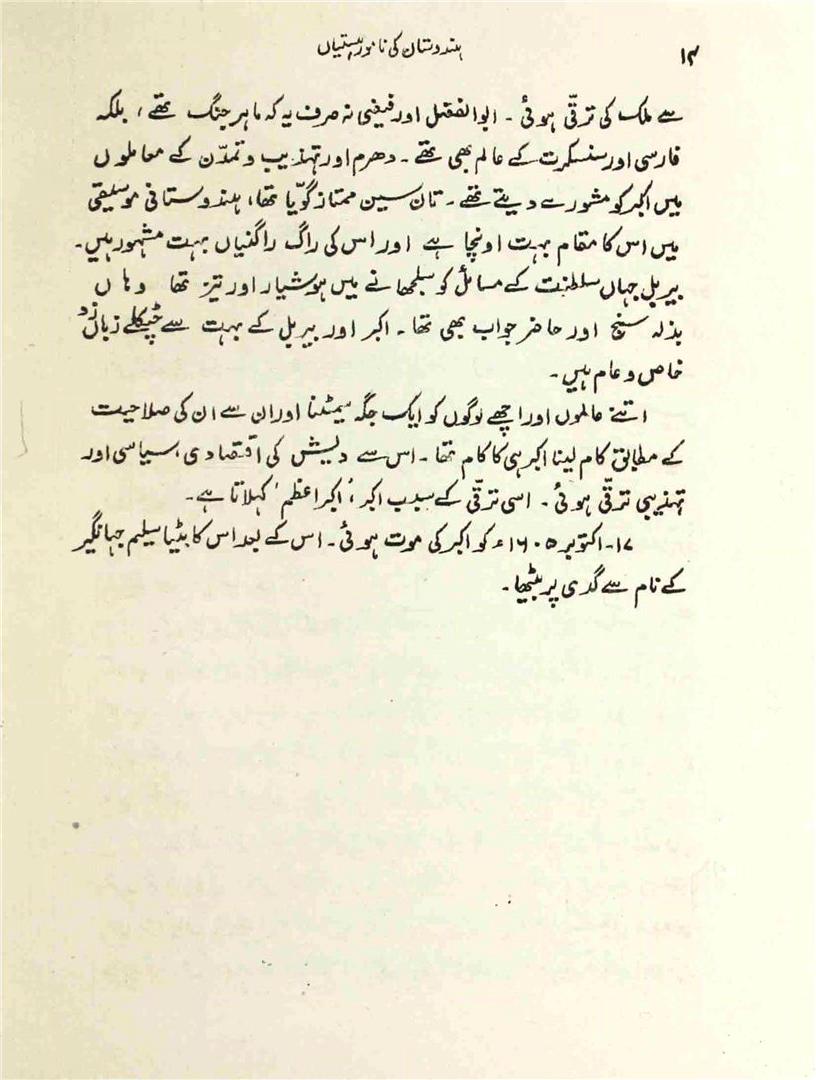 ۱۴
ہندوستان کی نامور ہستیاں
سے ملک کی ترقّی ہوئی ۔ ابوالفضل اور فیضی نہ صرف یہ کہ ماہر جنگ تھے ، بلکہ
فارسی اور سنسکرت کے عالم بھی تھے ۔ دھرم اور تہذیب و تمدّن کے معاملوں
میں اکبر کو مشورے دیتے تھے ۔ تان سین ممتاز گویّا تھا، ہندوستانی موسیقی
میں اس کا مقام بہت اونچا ہے اور اس کی راگ راگنیاں بہت مشہور ہیں ۔
بیربل جہاں سلطنت کے مسائل کو سلجھانے میں ہوشیار اور تیز تھا وہاں
بذلہ سنج اور حاضر جواب بھی تھا ۔ اکبر اور بیربل کے بہت سے چٹکلے زبان زد
خاص و عام ہیں ۔
اتنے عالموں اور اچھے لوگوں کو ایک جگہ سمیٹنا اور ان سے ان کی صلاحیت
کے مطابق کام لینا اکبر ہی کا کام تھا ۔ اس سے دیش کی اقتصادی، سیاسی اور
تہذیبی ترقّی ہوئی ۔ اسی ترقّی کے سبب اکبر، 'اکبر اعظم' کہلاتا ہے ۔
۱۷۔ اکتوبر ۱۶۰۵ء کو اکبر کی موت ہوئی ۔ اس کے بعد اس کا بیٹا سلیم جہانگیر
کے نام سے گدی پر بیٹھا ۔